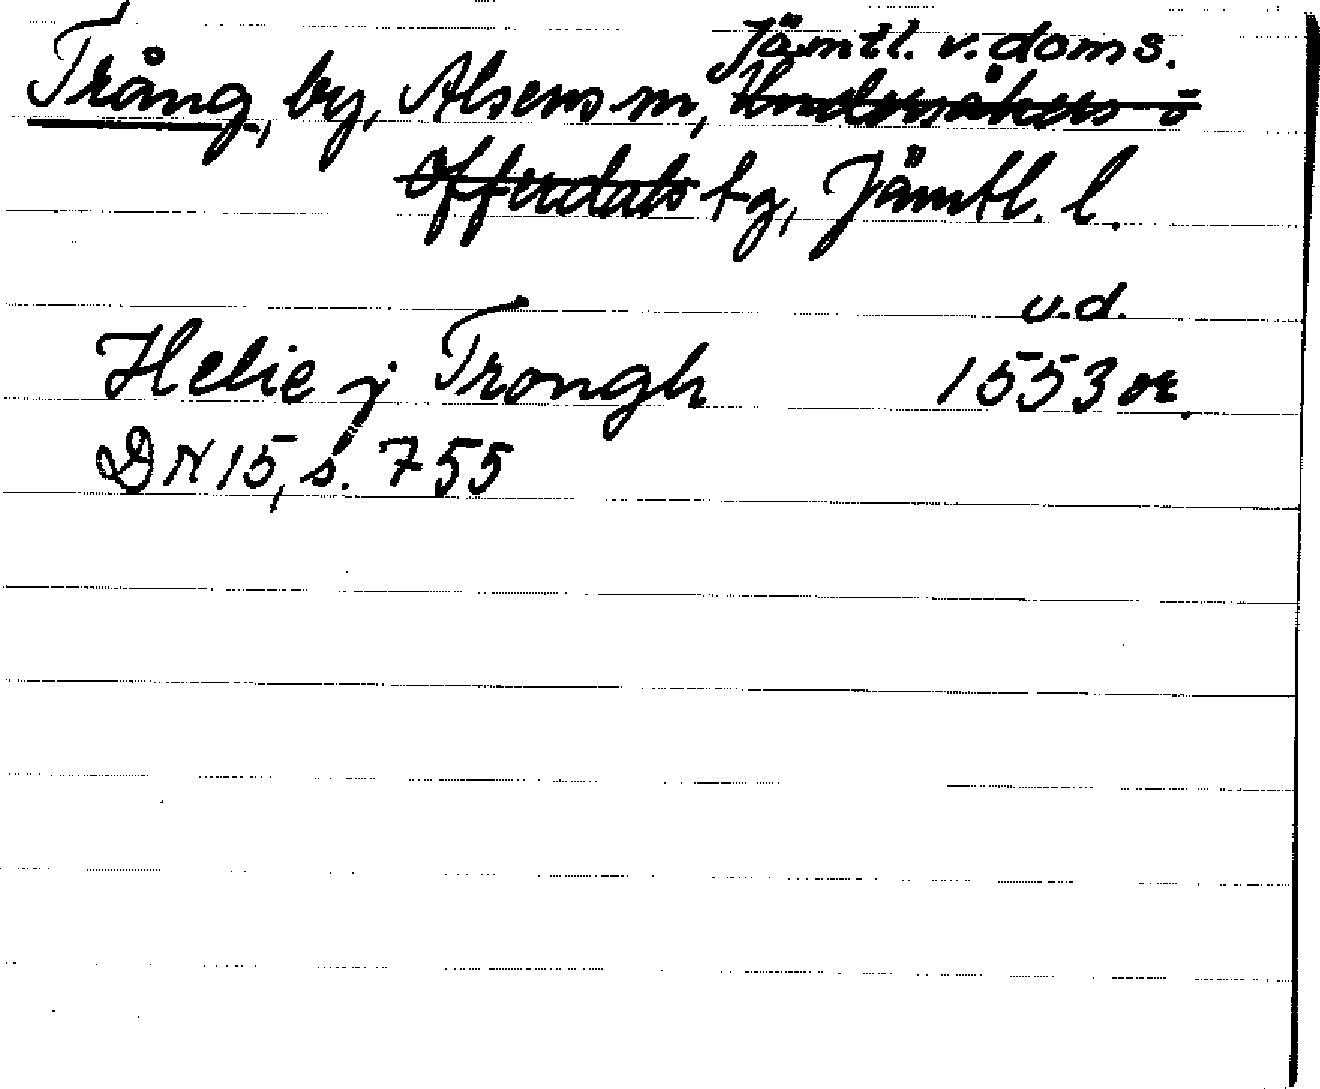 Jämtl. v. doms.
Trång, by, Alsens sn, Undersåkers o
Offerdals tg, Jämtl. l.
u.d.
Helie j Trongh 1553 or.
DN 15, s. 755